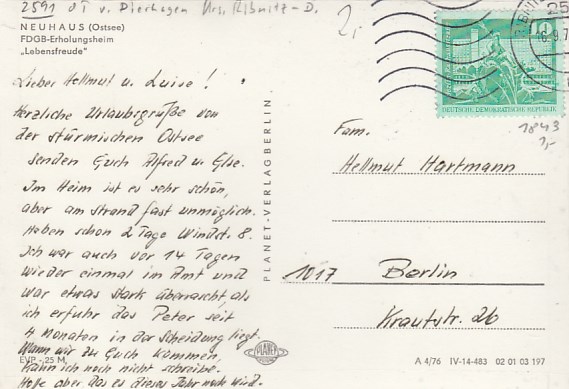 2591 OT v. Dierhagen Krs. Ribnitz-D.
2,-
NEUHAUS (Ostsee)
FDGB-Erholungsheim
„Lebensfreude"
Lieber Hellmut u. Luise!
Herzliche Urlaubsgrüße von
der stürmischen Ostsee
senden Euch Alfred u. Else.
Im Heim ist es sehr schön,
aber am Strand fast unmöglich.
Haben schon 2 Tage Windst. 8.
Ich war auch vor 14 Tagen
wieder einmal im Amt und
war etwas stark überrascht, als
ich erfuhr das Peter seit
4 Monaten in der Scheidung liegt.
Wann wir zu Euch kommen,
kann ich noch nicht schreibe.
Hoffe aber das es dieses Jahr noch wird.
EVP -,25 M
PLANET-VERLAG BERLIN
PLANET
10
DEUTSCHE DEMOKRATISCHE REPUBLIK
25
6.9.7
1843
1,-
Fam.
Hellmut Hartmann
1017 Berlin
Krautstr. 26
A 4/76 IV-14-483 02 01 03 197